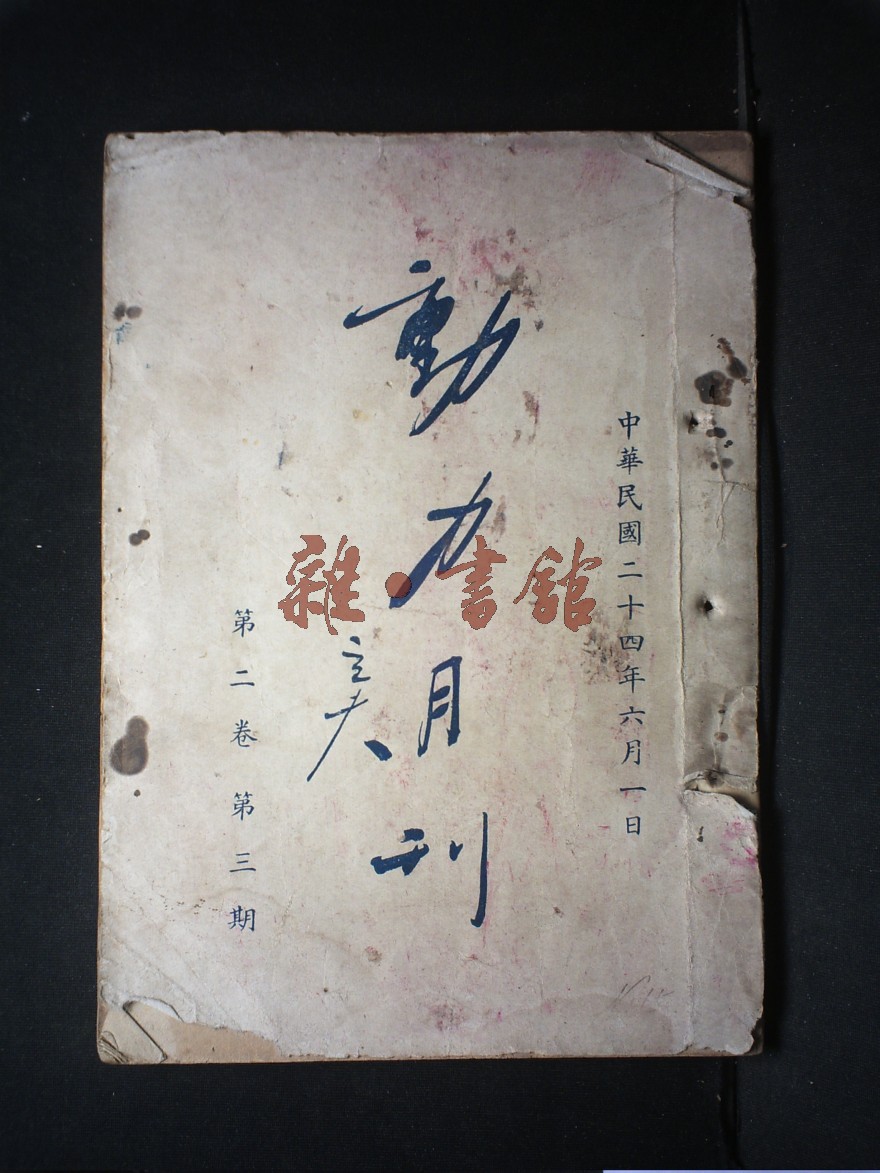 中華民國二十四年六月一日
動力月刊
立夫
第二卷第三期
雜·書館